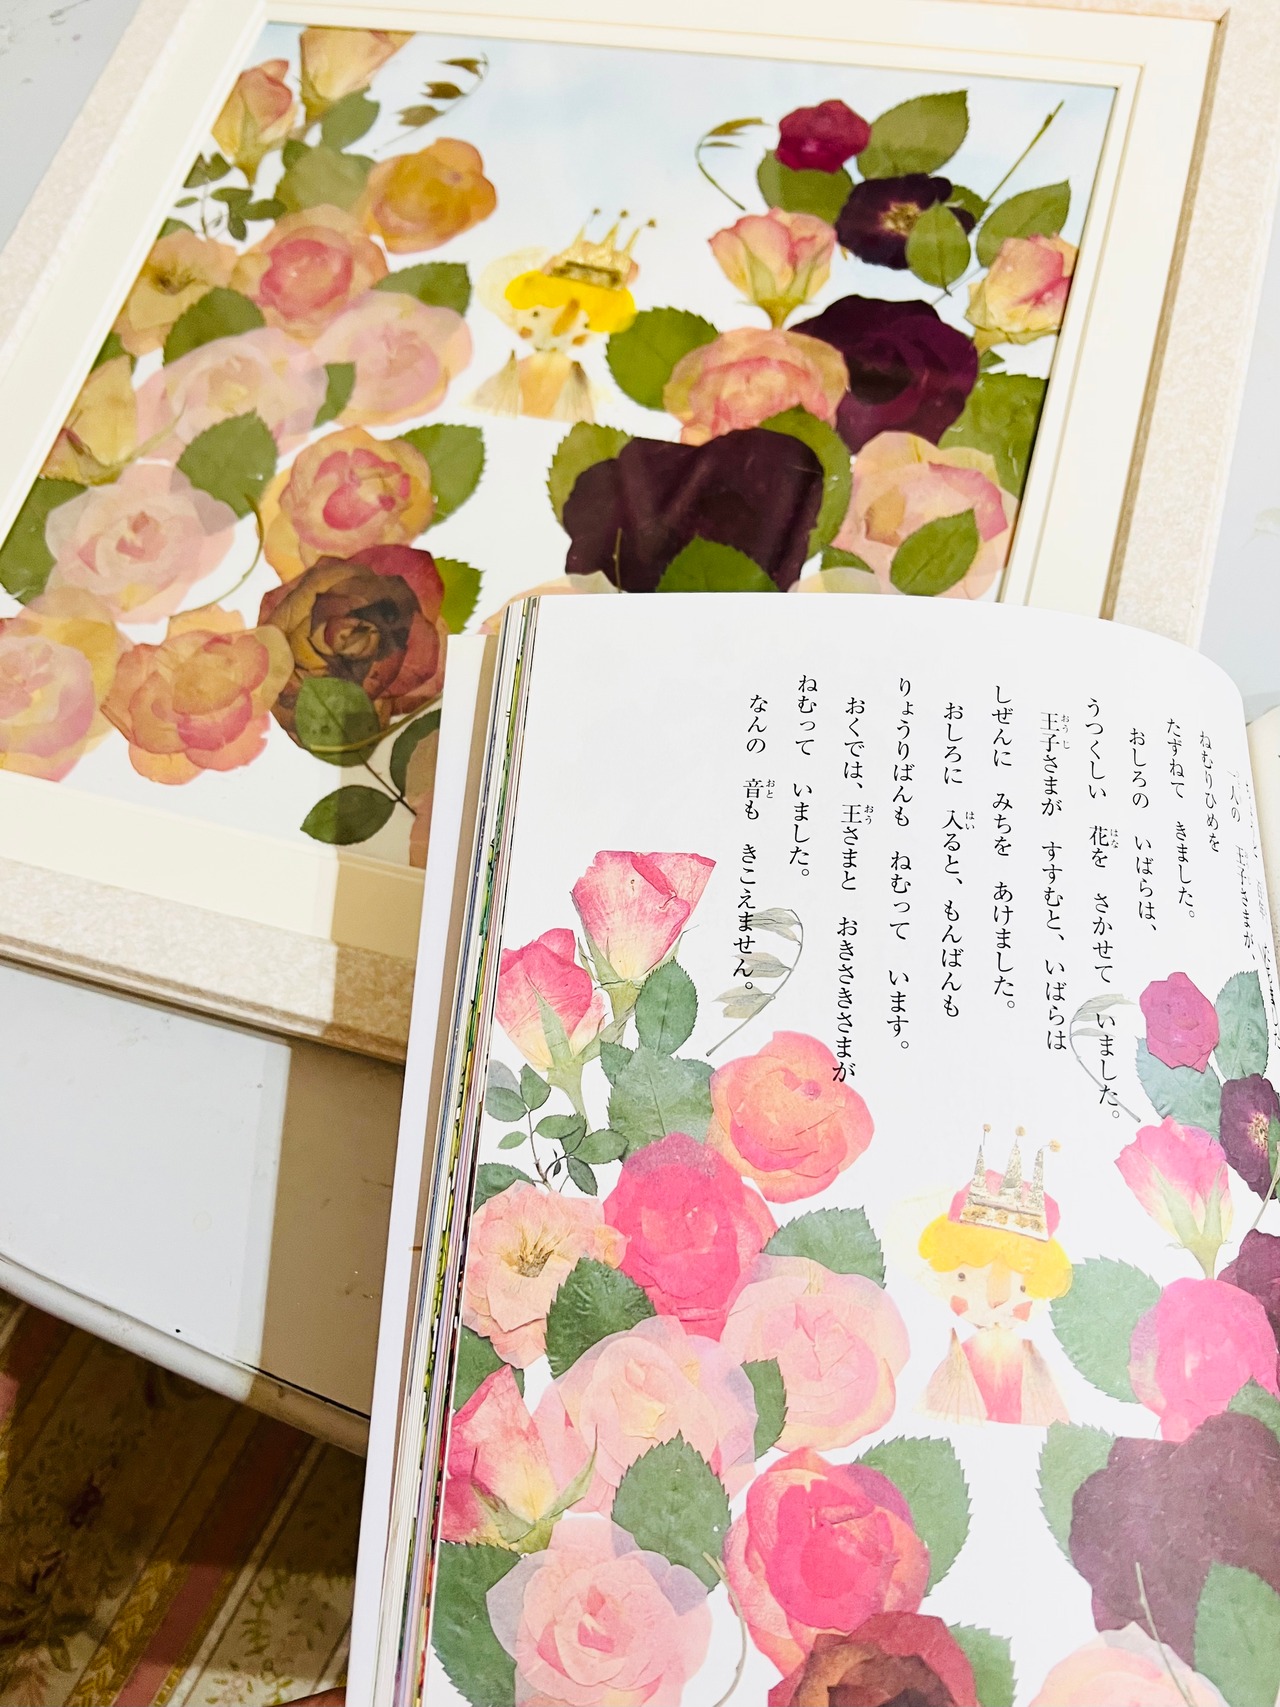 一人の 王子さまが、
ねむりひめを
たずねて きました。
おしろの いばらは、
うつくしい 花を さかせて いました。
王子さまが すすむと、いばらは
しぜんに みちを あけました。
おしろに 入ると、もんばんも
りょうりばんも ねむって います。
おくでは、王さまと おきさきさまが
ねむって いました。
なんの 音も きこえません。